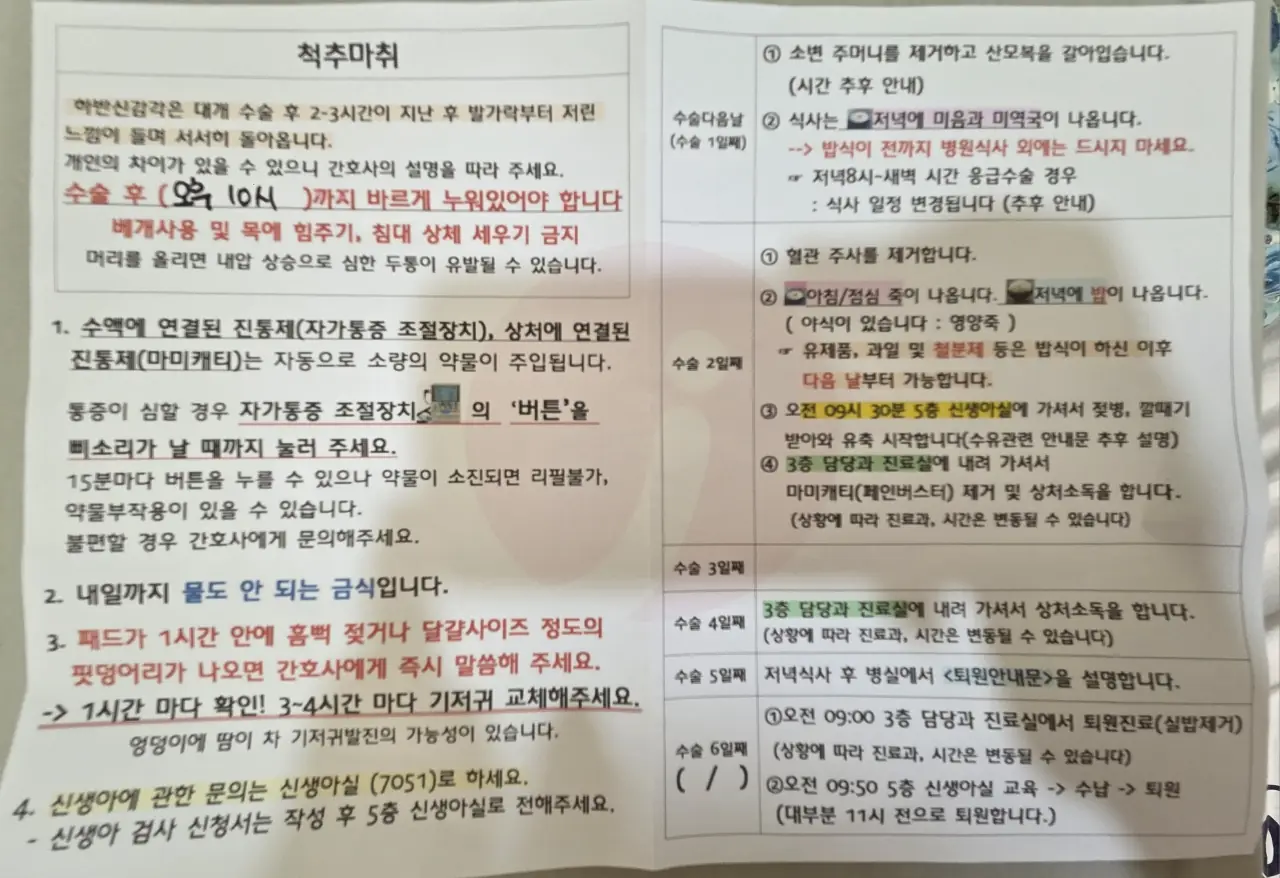 척추마취
하반신감각은 대개 수술 후 2-3시간이 지난 후 발가락부터 저린
느낌이 들며 서서히 돌아옵니다.
개인의 차이가 있을 수 있으니 간호사의 설명을 따라 주세요.
수술 후 (오후 10시 )까지 바르게 누워있어야 합니다
베개사용 및 목에 힘주기, 침대 상체 세우기 금지
머리를 올리면 내압 상승으로 심한 두통이 유발될 수 있습니다.
1. 수액에 연결된 진통제(자가통증 조절장치), 상처에 연결된
진통제(마미캐티)는 자동으로 소량의 약물이 주입됩니다.
통증이 심할 경우 자가통증 조절장치 의 '버튼'을
삐소리가 날 때까지 눌러 주세요.
15분마다 버튼을 누를 수 있으나 약물이 소진되면 리필불가,
약물부작용이 있을 수 있습니다.
불편할 경우 간호사에게 문의해주세요.
2. 내일까지 물도 안 되는 금식입니다.
3. 패드가 1시간 안에 흠뻑 젖거나 달걀사이즈 정도의
핏덩어리가 나오면 간호사에게 즉시 말씀해 주세요.
-> 1시간 마다 확인! 3~4시간 마다 기저귀 교체해주세요.
엉덩이에 땀이 차 기저귀발진의 가능성이 있습니다.
4. 신생아에 관한 문의는 신생아실 (7051)로 하세요.
- 신생아 검사 신청서는 작성 후 5층 신생아실로 전해주세요.
수술다음날
(수술 1일째)
① 소변 주머니를 제거하고 산모복을 갈아입습니다.
(시간 추후 안내)
② 식사는 저녁에 미음과 미역국이 나옵니다.
--> 밥식이 전까지 병원식사 외에는 드시지 마세요.
☞ 저녁8시-새벽 시간 응급수술 경우
: 식사 일정 변경됩니다 (추후 안내)
수술 2일째
① 혈관 주사를 제거합니다.
② 아침/점심 죽이 나옵니다. 저녁에 밥이 나옵니다.
( 야식이 있습니다 : 영양죽 )
☞ 유제품, 과일 및 철분제 등은 밥식이 하신 이후
다음 날부터 가능합니다.
③ 오전 09시 30분 5층 신생아실에 가셔서 젖병, 깔때기
받아와 유축 시작합니다(수유관련 안내문 추후 설명)
④ 3층 담당과 진료실에 내려 가셔서
마미캐티(페인버스터) 제거 및 상처소독을 합니다.
(상황에 따라 진료과, 시간은 변동될 수 있습니다)
수술 3일째
수술 4일째
3층 담당과 진료실에 내려 가셔서 상처소독을 합니다.
(상황에 따라 진료과, 시간은 변동될 수 있습니다)
수술 5일째
저녁식사 후 병실에서 <퇴원안내문>을 설명합니다.
수술 6일째
( / )
①오전 09:00 3층 담당과 진료실에서 퇴원진료(실밥제거)
(상황에 따라 진료과, 시간은 변동될 수 있습니다)
②오전 09:50 5층 신생아실 교육 -> 수납 -> 퇴원
(대부분 11시 전으로 퇴원합니다.)